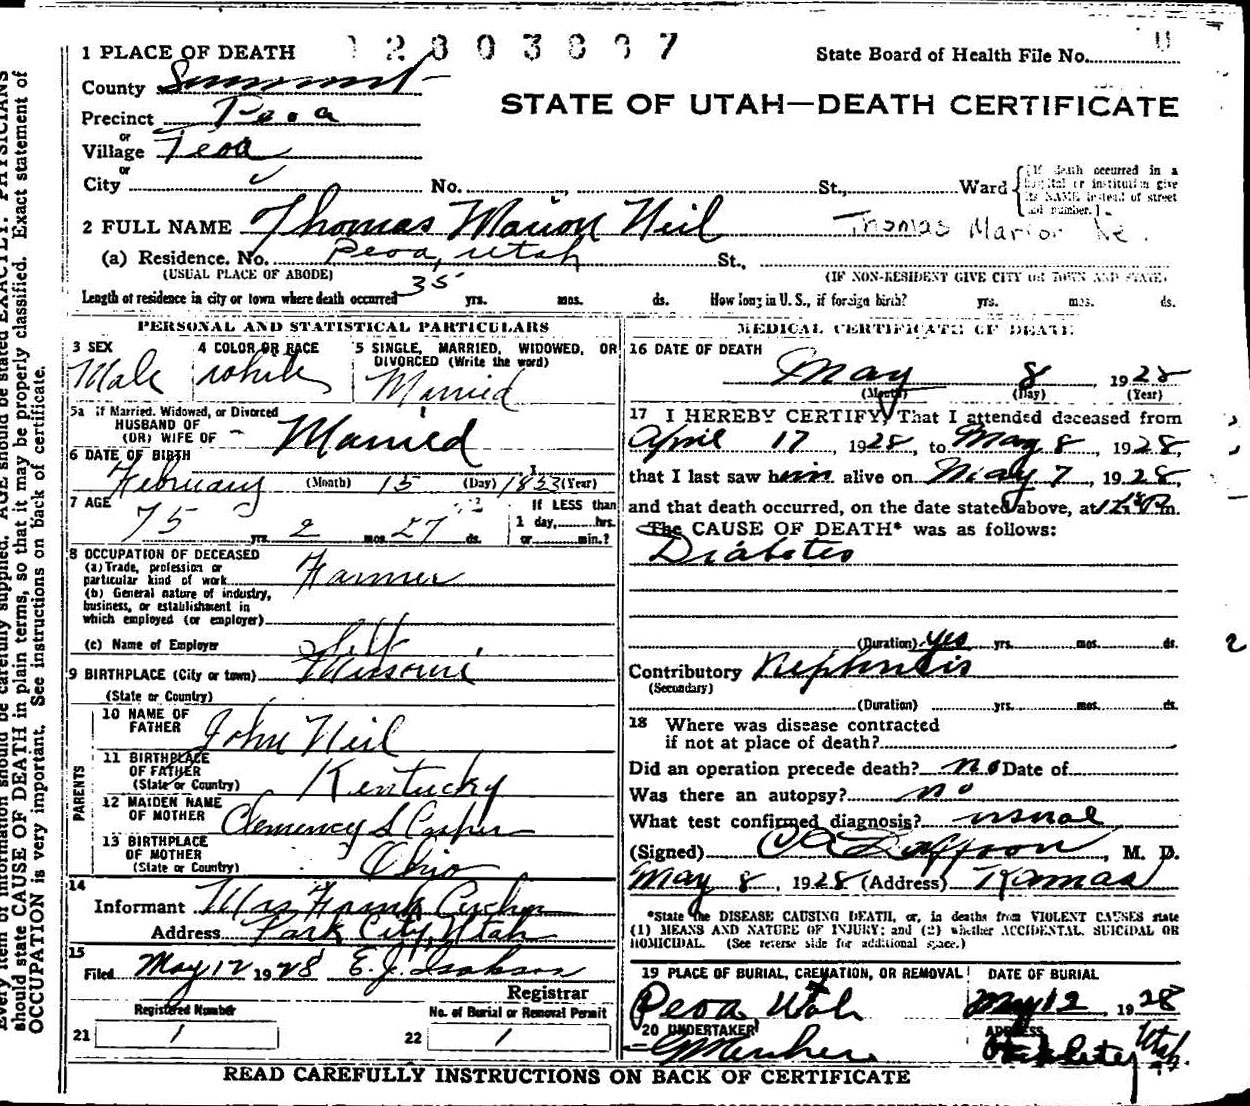 1 PLACE OF DEATH
State Board of Health File No.
County Summit
STATE OF UTAH—DEATH CERTIFICATE
Precinct Peoa
or
Village Peoa
or
City No. St., Ward
{(If death occurred in a
hospital or institution give
its NAME instead of street
and number.)
2 FULL NAME Thomas Marion Neil Thomas Marion Ne
(a) Residence. No. Peoa, Utah St.,
(USUAL PLACE OF ABODE) (IF NON-RESIDENT GIVE CITY OR TOWN AND STATE)
Length of residence in city or town where death occurred 35 yrs. mos. ds. How long in U. S., if foreign birth? yrs. mos. ds.
PERSONAL AND STATISTICAL PARTICULARS
3 SEX
Male
4 COLOR OR RACE
white
5 SINGLE, MARRIED, WIDOWED, OR
DIVORCED (Write the word)
Married
5a If Married, Widowed, or Divorced
HUSBAND OF
(OR) WIFE OF Married
6 DATE OF BIRTH
February (Month) 15 (Day) 1853 (Year)
7 AGE
75 yrs. 2 mos. 27 ds.
If LESS than
1 day, hrs.
or min.?
8 OCCUPATION OF DECEASED
(a) Trade, profession or
particular kind of work Farmer
(b) General nature of industry,
business, or establishment in
which employed (or employer)
(c) Name of Employer Self
9 BIRTHPLACE (City or town) Missouri
(State or Country)
PARENTS
10 NAME OF
FATHER John Neil
11 BIRTHPLACE
OF FATHER
(State or Country) Kentucky
12 MAIDEN NAME
OF MOTHER Clemency S Casper
13 BIRTHPLACE
OF MOTHER
(State or Country) Ohio
14
Informant Mrs Frank Archer
Address Park City, Utah
15
Filed May 12 1928 E. J. Isakson
Registrar
Registered Number
21 1
No. of Burial or Removal Permit
22 1
MEDICAL CERTIFICATE OF DEATH
16 DATE OF DEATH
May 8, 1928
(Month) (Day) (Year)
17 I HEREBY CERTIFY, That I attended deceased from
April 17 1928, to May 8, 1928,
that I last saw him alive on May 7, 1928,
and that death occurred, on the date stated above, at m.
The CAUSE OF DEATH* was as follows:
Diabetes
(Duration) yes yrs. mos. ds.
Contributory Nephritis
(Secondary)
(Duration) yrs. mos. ds.
18 Where was disease contracted
if not at place of death?
Did an operation precede death? no Date of
Was there an autopsy? no
What test confirmed diagnosis? usual
(Signed) , M. D.
May 8, 1928 (Address) Kamas
*State the DISEASE CAUSING DEATH, or, in deaths from VIOLENT CAUSES state
(1) MEANS AND NATURE OF INJURY; and (2) whether ACCIDENTAL, SUICIDAL OR
HOMICIDAL. (See reverse side for additional space.)
19 PLACE OF BURIAL, CREMATION, OR REMOVAL
Peoa Utah
DATE OF BURIAL
May 12, 1928
20 UNDERTAKER
ADDRESS
Utah.
READ CAREFULLY INSTRUCTIONS ON BACK OF CERTIFICATE
should state CAUSE OF DEATH in plain terms, so that it may be properly classified. Exact statement of
OCCUPATION is very important. See instructions on back of certificate.